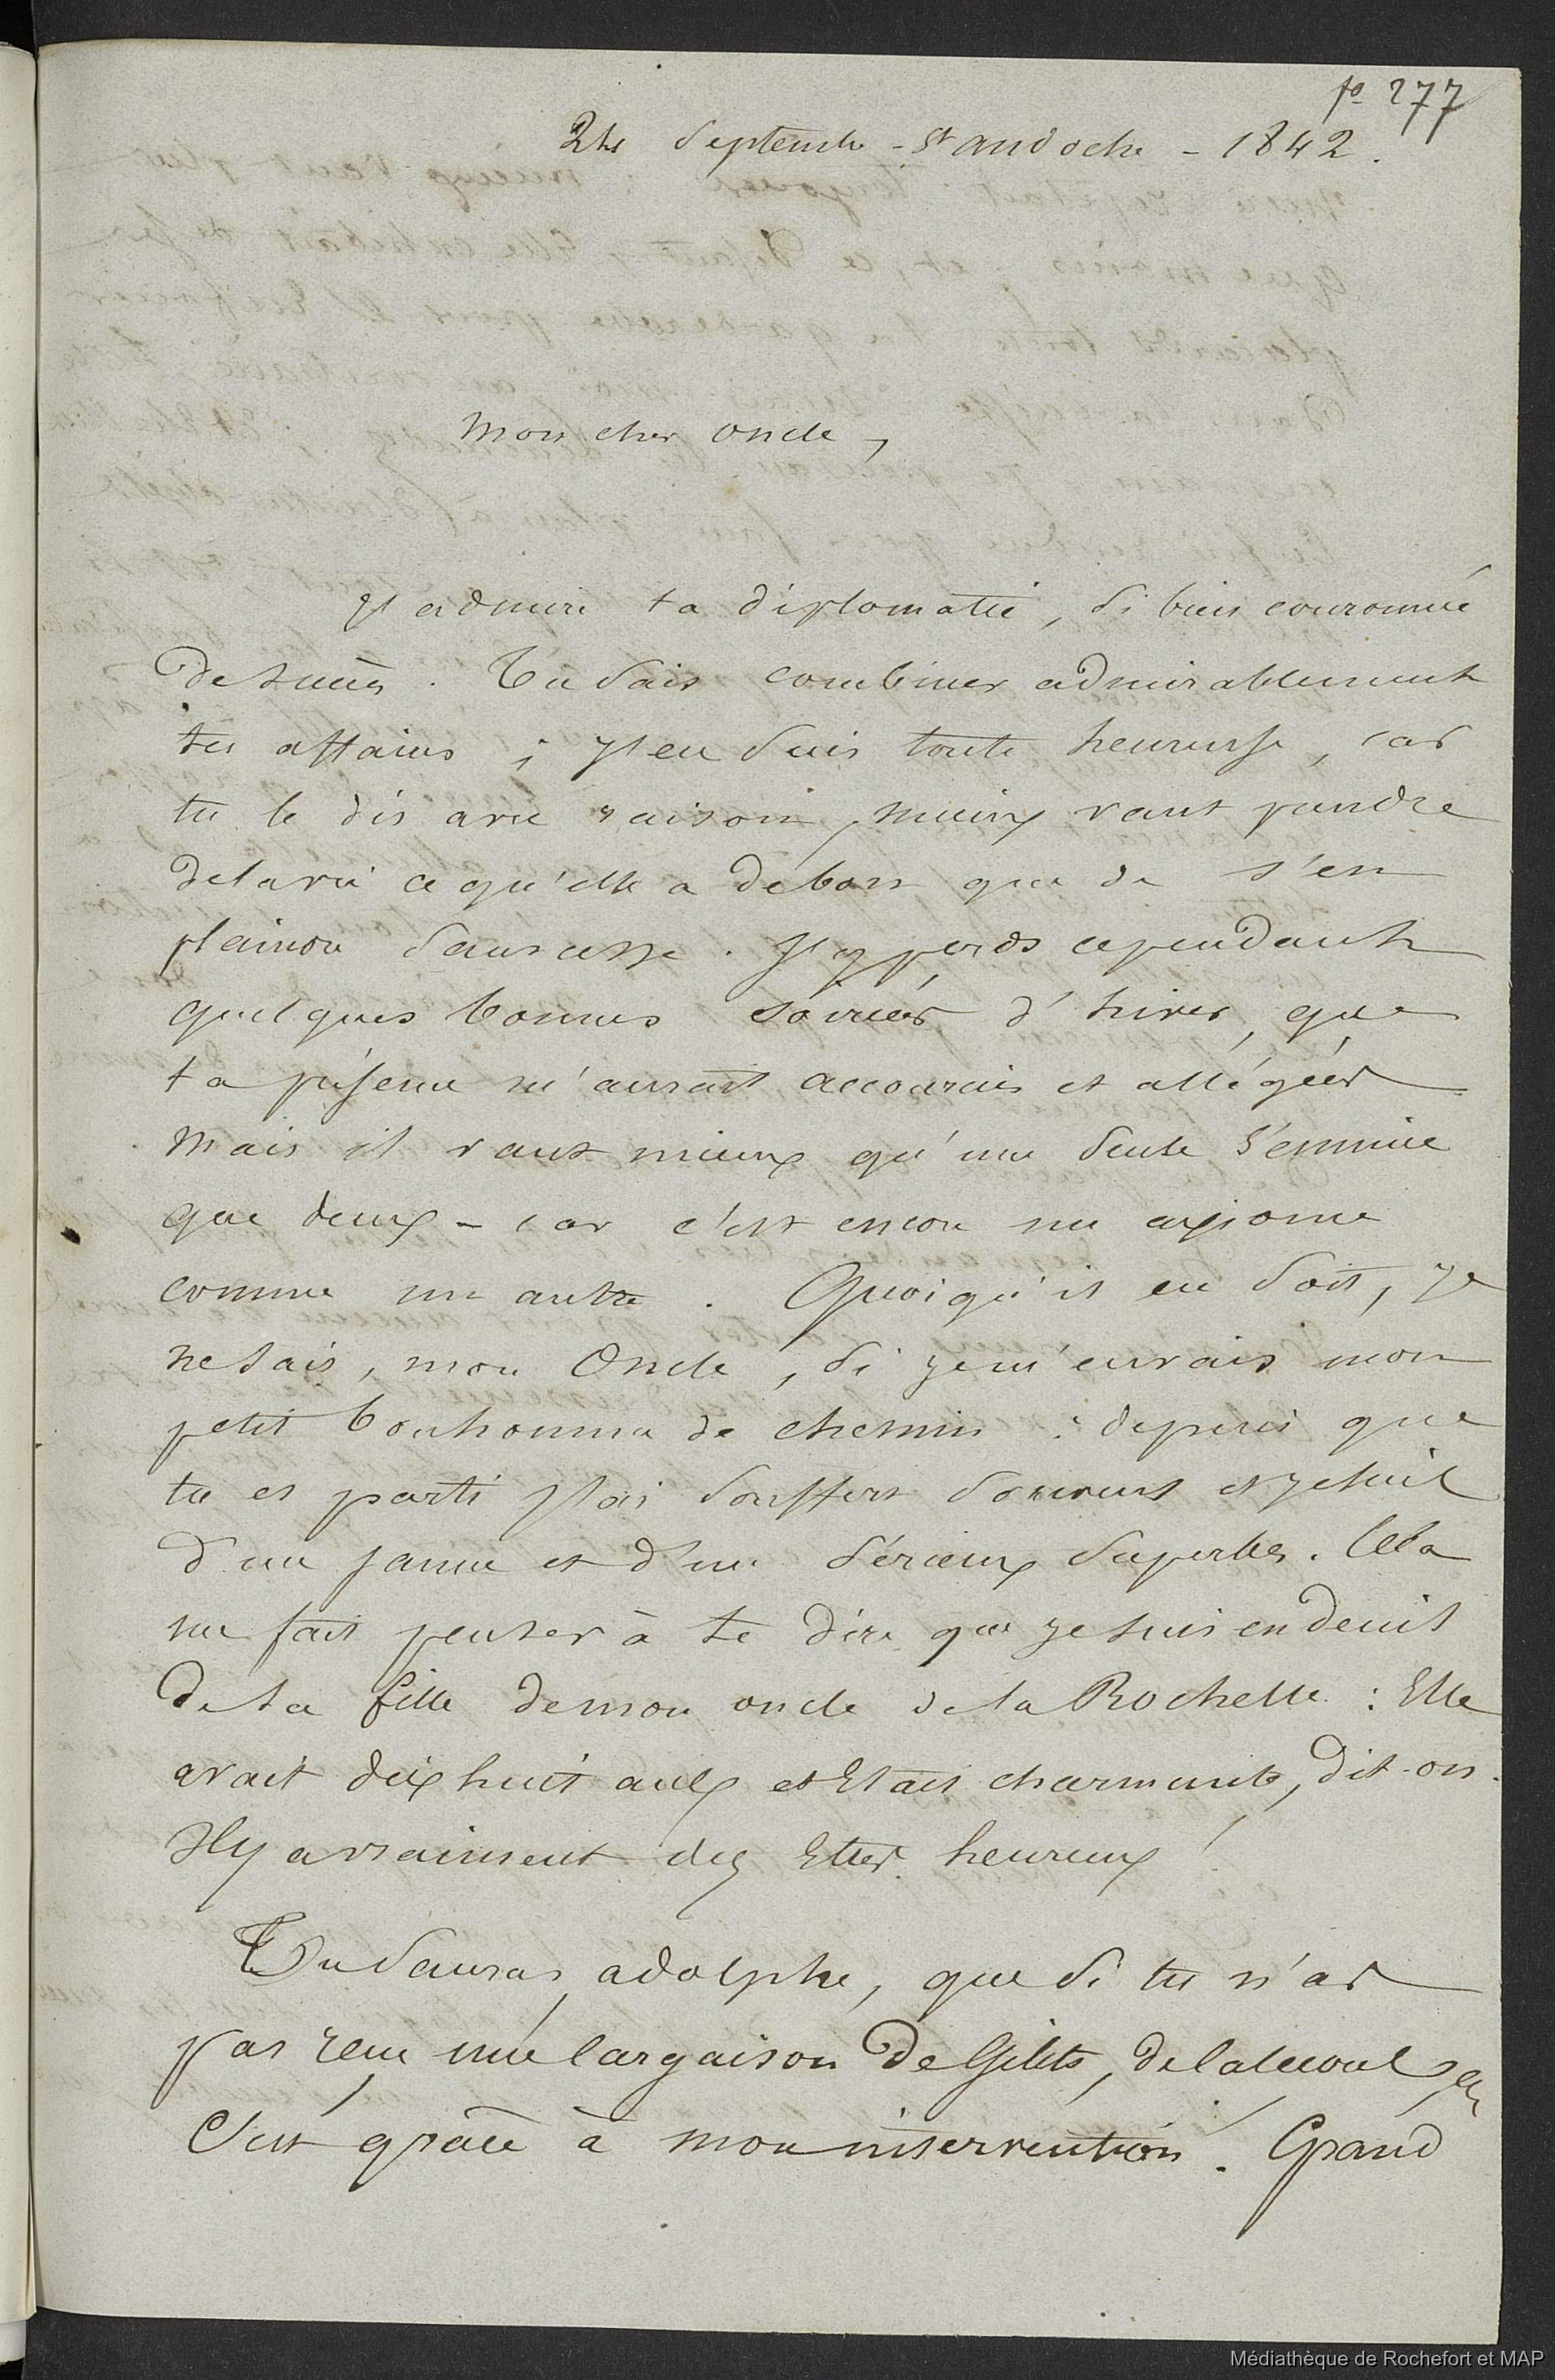 fo 277
24 Septembre - St andoche - 1842.
Mon cher oncle,
J'admire ta diplomatie, si bien couronnée
de succès. Tu sais combiner admirablement
tes affaires ; j'en suis toute heureuse, car
tu le dis avec raison, mieux vaut prendre
de la vie ce qu'elle a de bon que de s'en
plaindre sans cesse. J'y perds cependant
quelques bonnes soirées d'hiver, que
ta présence m'aurait accourcies et allégées
Mais il vaut mieux qu'une seule s'ennuie
que deux - car c'est encore un axiome
comme un autre. Quoiqu'il en soit, je
ne sais, mon Oncle, si je m'en vais mon
petit bonhomme de chemin : depuis que
tu es parti j'ai souffert souvent et je suis
d'un jaune et d'un sérieux superbes. Cela
me fait penser à te dire que je suis en deuil
de la fille de mon oncle de la Rochelle : Elle
avait dix huit ans et était charmante, dit-on.
Il y a vraiment des êtres heureux !
Tu sauras, adolphe, que si tu n'as
pas reçu une cargaison de Gilets, de
C'est grâce à mon intervention. Grand
Médiathèque de Rochefort et MAP